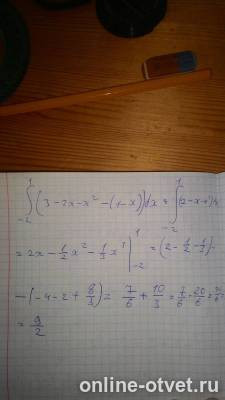 ∫₋₂¹ (3 - 2x - x² - (1 - x))dx = ∫₋₂¹ (2 - x - x²)dx
= 2x - 1/2 x² - 1/3 x³ |₋₂¹ = (2 - 1/2 - 1/3) -
- (-4 - 2 + 8/3) = 7/6 + 10/3 = 7/6 + 20/6 =
= 9/2
online-otvet.ru